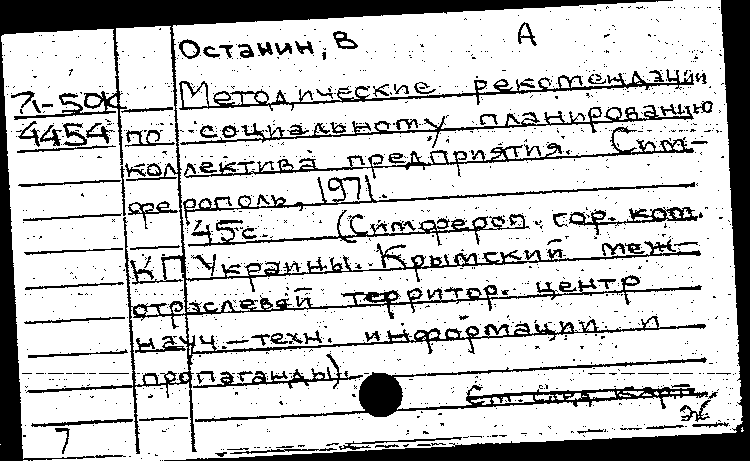 Останин, В А
71-50К Методические рекомендации
4454 по социальному планированию
коллектива предприятия. Сим-
ферополь, 1971.
45с. (Симфероп. гор. ком.
КП Украины. Крымский меж-
отраслевой территор. центр
науч.-техн. информации и
пропаганды).
См. след. карт.
7 эк